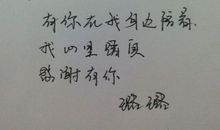 有你在我身边陪着.
我心里踏实
感谢有你
璐璐